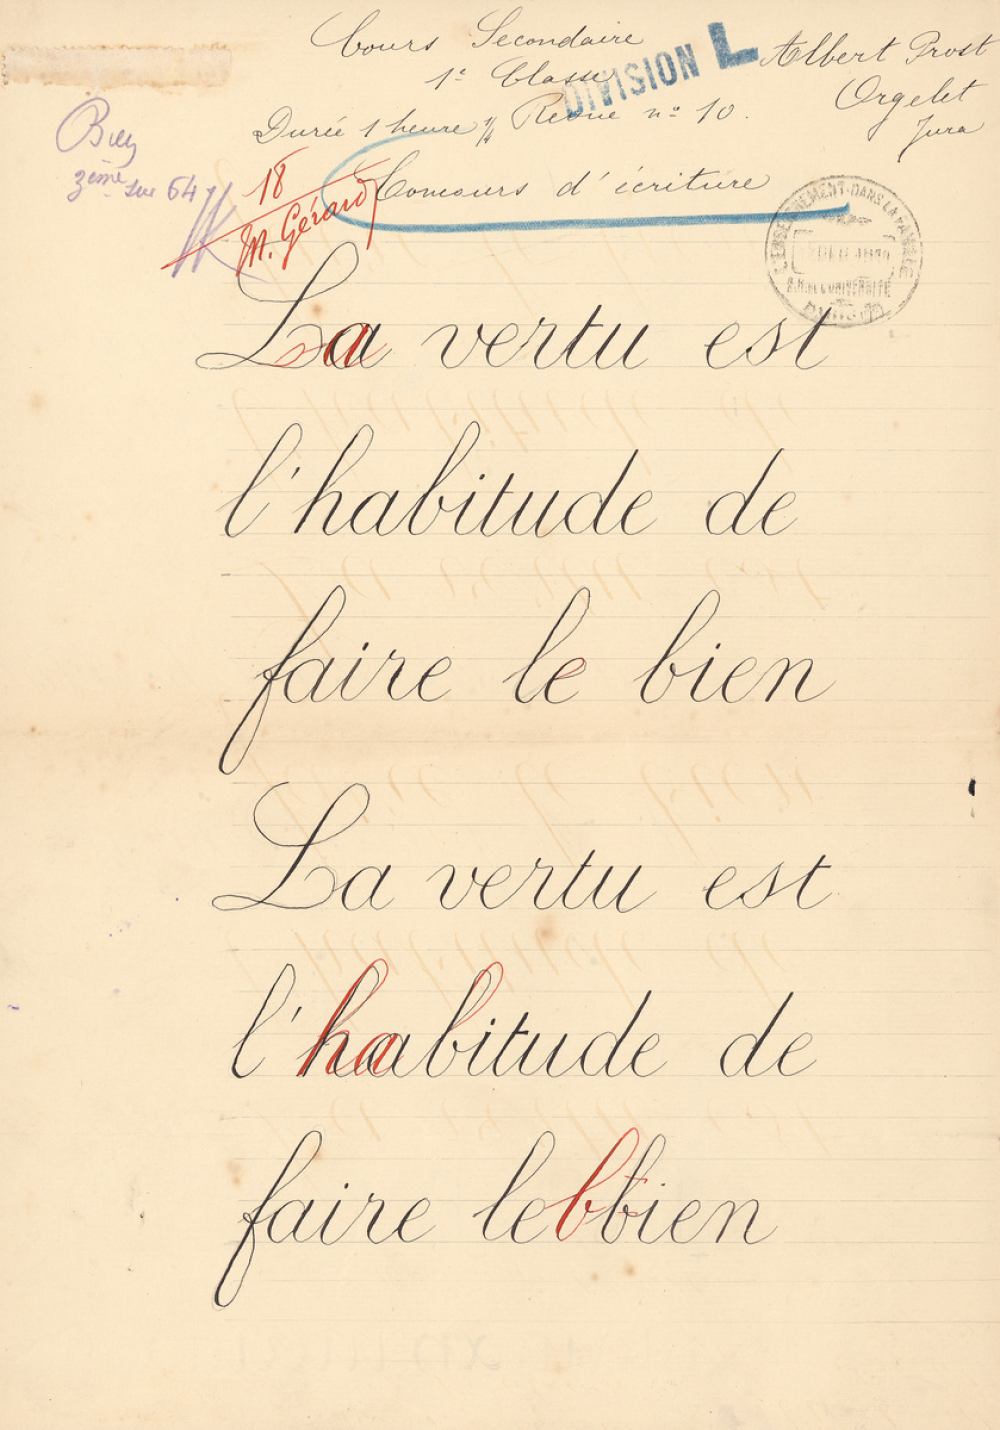 Cours Secondaire
1e Classe
DIVISION L
Albert Prost
Orgelet
Jura
Durée 1 heure ½ Revue no 10.
Bien
3ème sur 64
18
M. Gérard
Concours d'écriture
L'ENSEIGNEMENT DANS LA FAMILLE
R. DE L'UNIVERSITÉ
PARIS
La vertu est
l'habitude de
faire le bien
La vertu est
l'habitude de
faire le bien